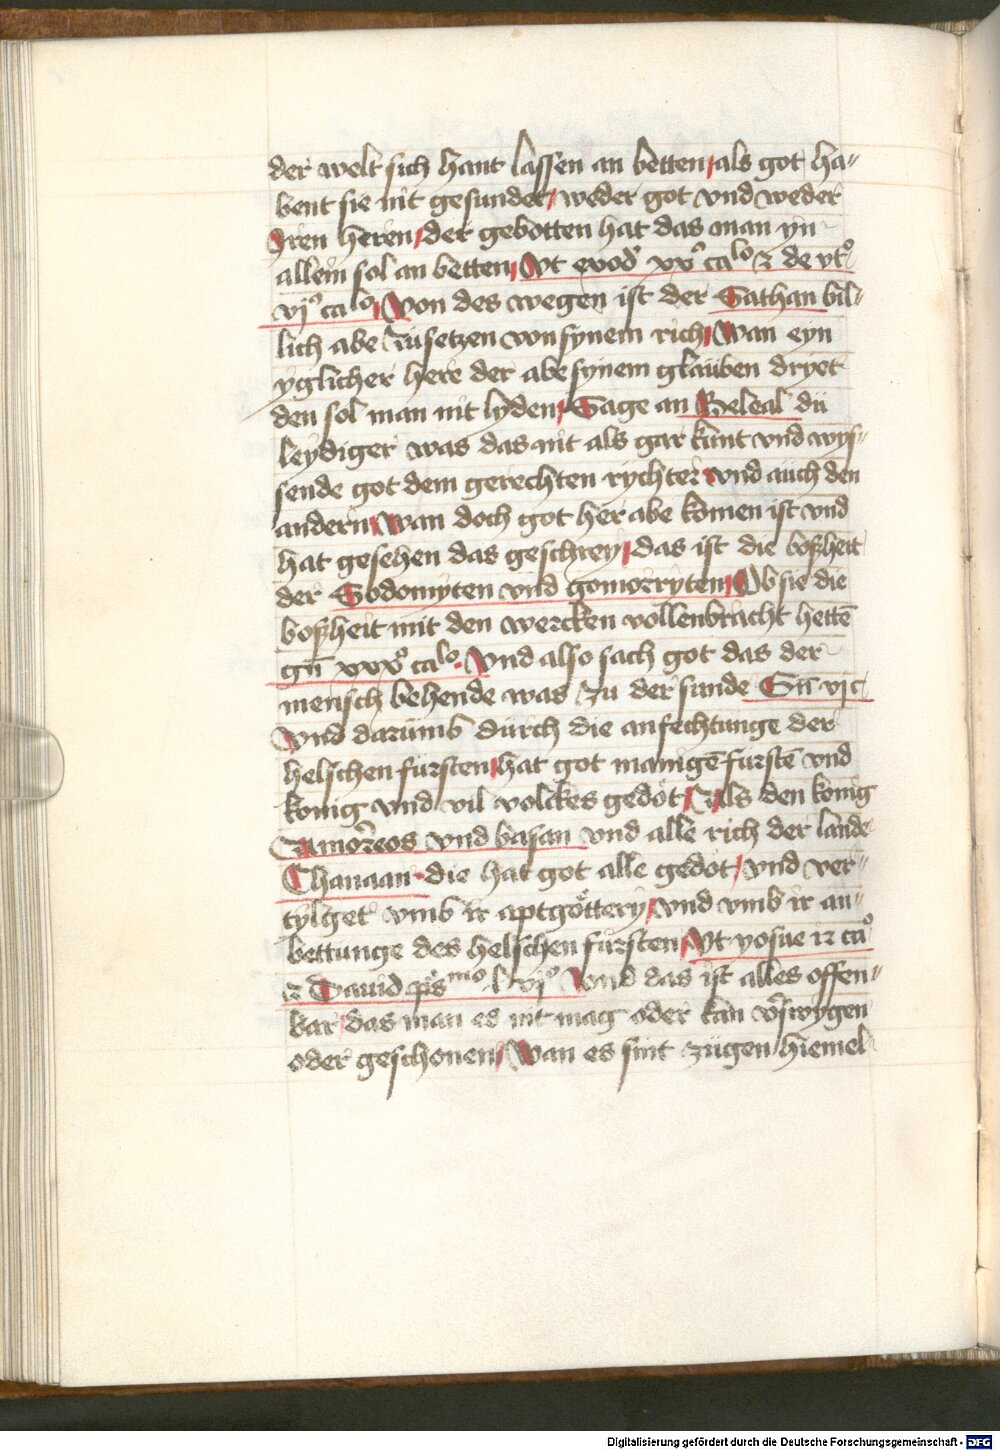 der welt sich hant lassen an betten / als got ha⸗
bent sie nit gesundet / weder got vnd weder
Iren heren / der gebotten hat das man yn
allein sol an betten / Vt exod° xx° ca^lo z de vt°
vj° ca^lo / Von des wegen ist der Sathan bil⸗
lich abe zusetzen von synem rich / Wan eyn
yglicher here der abe synem glauben dryet
den sol man nit lyden / Sage an Beleal dü
leydiger was das nit als gar kunt vnd wys⸗
sende got dem gerechten rychter vnd auch den
andern / Wan doch got her abe komen ist vnd
hat gesehen das geschrey / das ist die boßheit
der Sodomyten vnd gomorryten / Ob sie die
boßheit mit den wercken vollenbracht hettē
gn̄ xxx° ca^lo. Vnd also sach got das der
mensch behende was zu der sunde Gn̄ vjc
Vnd darumb durch die anfechtunge der
helschen fursten / hat got manigē furstē vnd
konig vnd vil volckes gedöt / Als den konig
Amoreos vnd basan vnd alle rich der lande
Chanaan · die hat got alle gedöt / vnd ver⸗
tylget vmb ir aptgöttery / vnd vmb ir an⸗
bettunge des helschen fursten / Vt yosue 12 ca°
z Dauid ps^mo lvij° Vnd das ist alles offen⸗
bar / das man es nit mag oder kan v̄swygen
oder geschonen / Wan es sint zügen hiemel
Digitalisierung gefördert durch die Deutsche Forschungsgemeinschaft - DFG